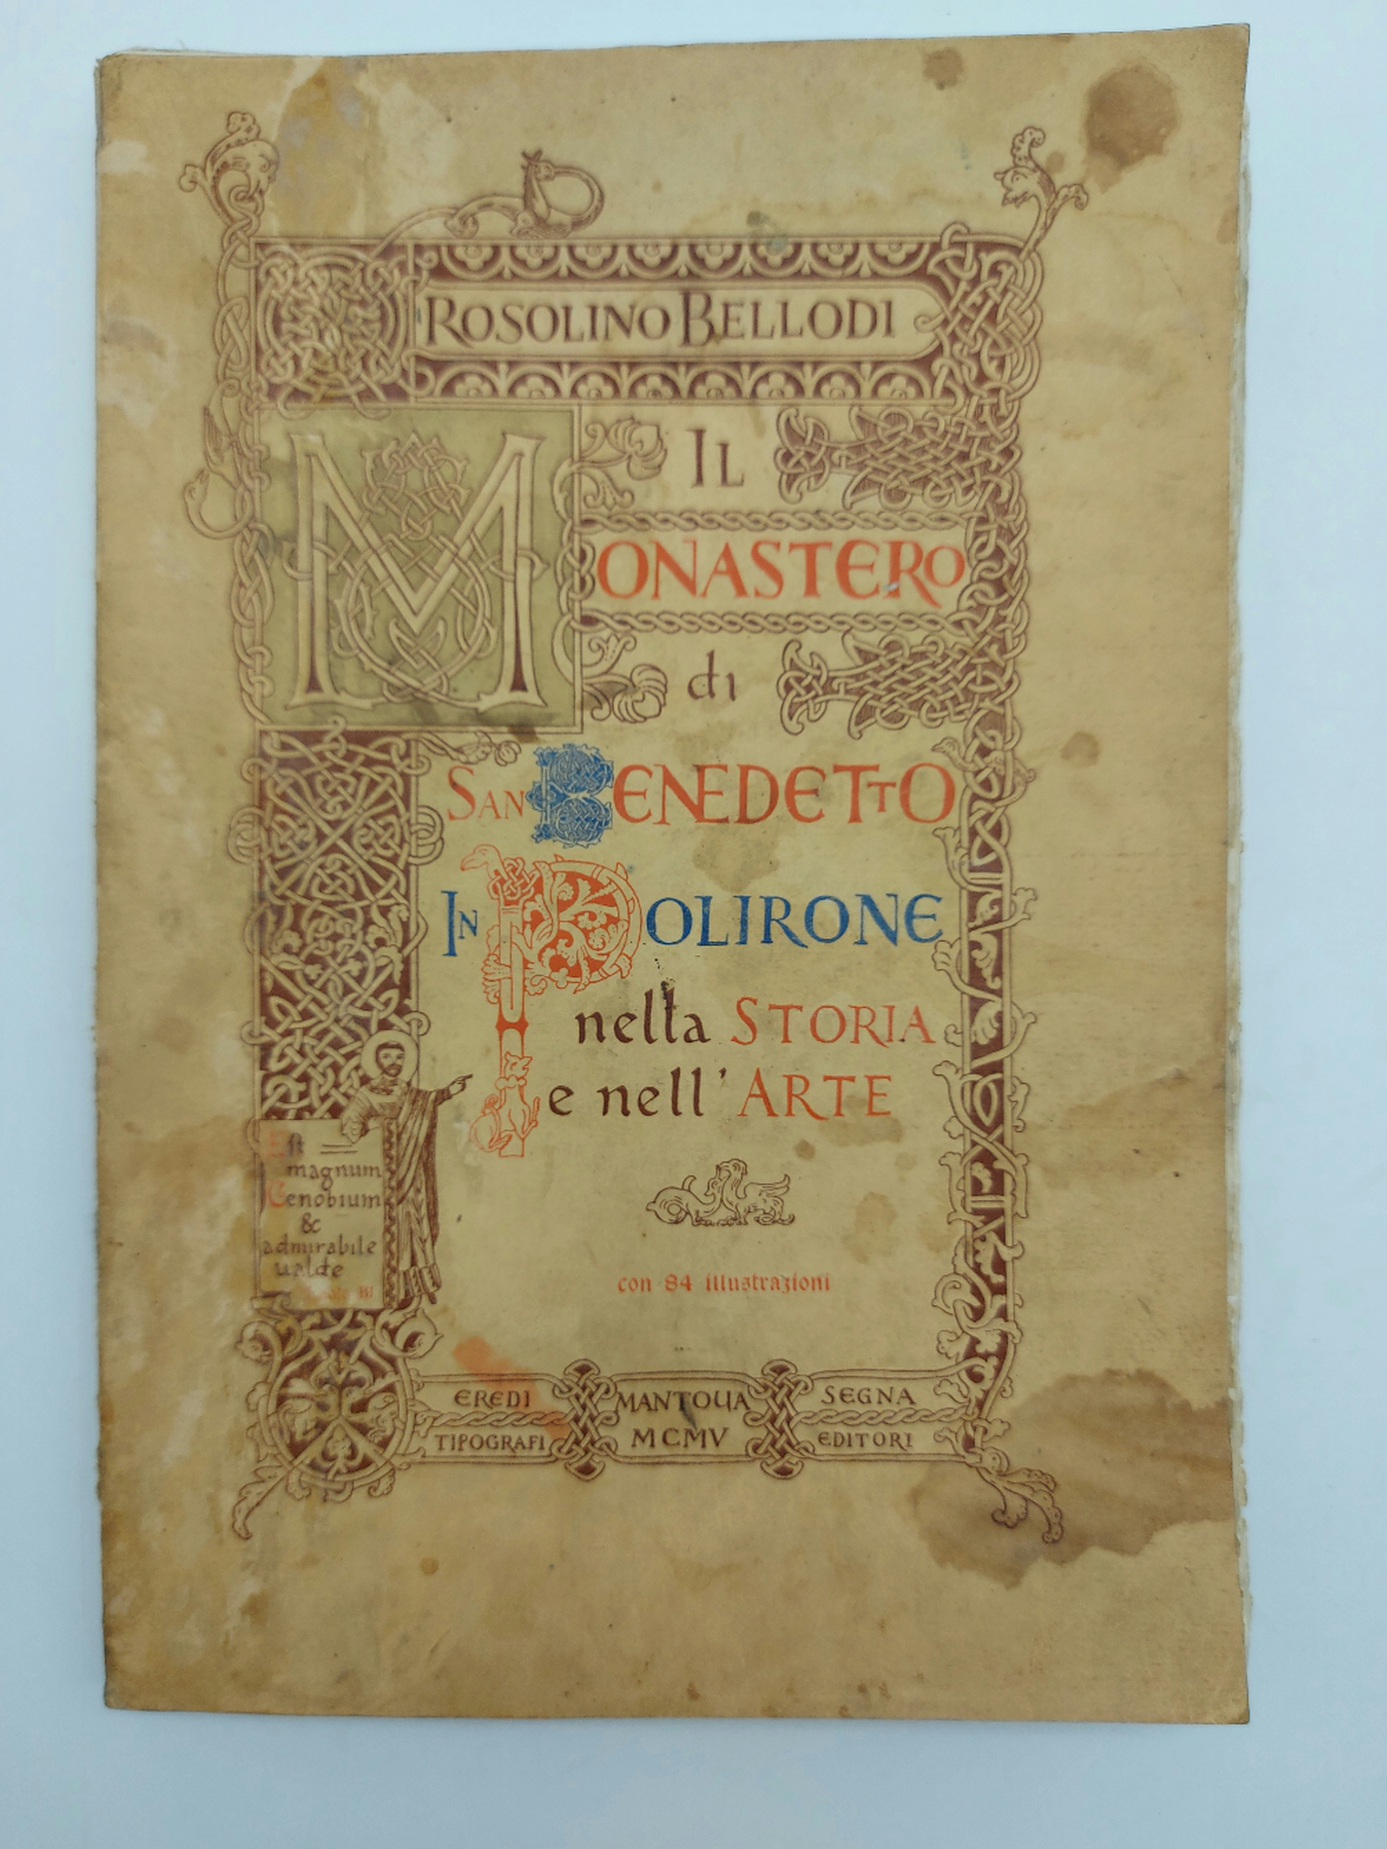 ROSOLINO BELLODI
IL
MONASTERO
di
SAN BENEDETTO
IN POLIRONE
nella STORIA
e nell' ARTE
Est
magnum
Cenobium
&
admirabile
ualde
con 84 illustrazioni
EREDI MANTOUA SEGNA
TIPOGRAFI MCMV EDITORI